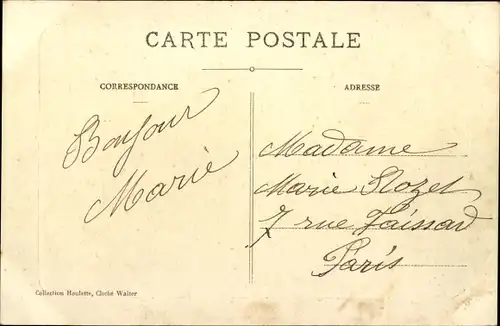 CARTE POSTALE
CORRESPONDANCE
ADRESSE
Bonjour
Marie
Madame
Marie Rozet
7 rue
Paris
Collection Houlotte, Cliché Walter